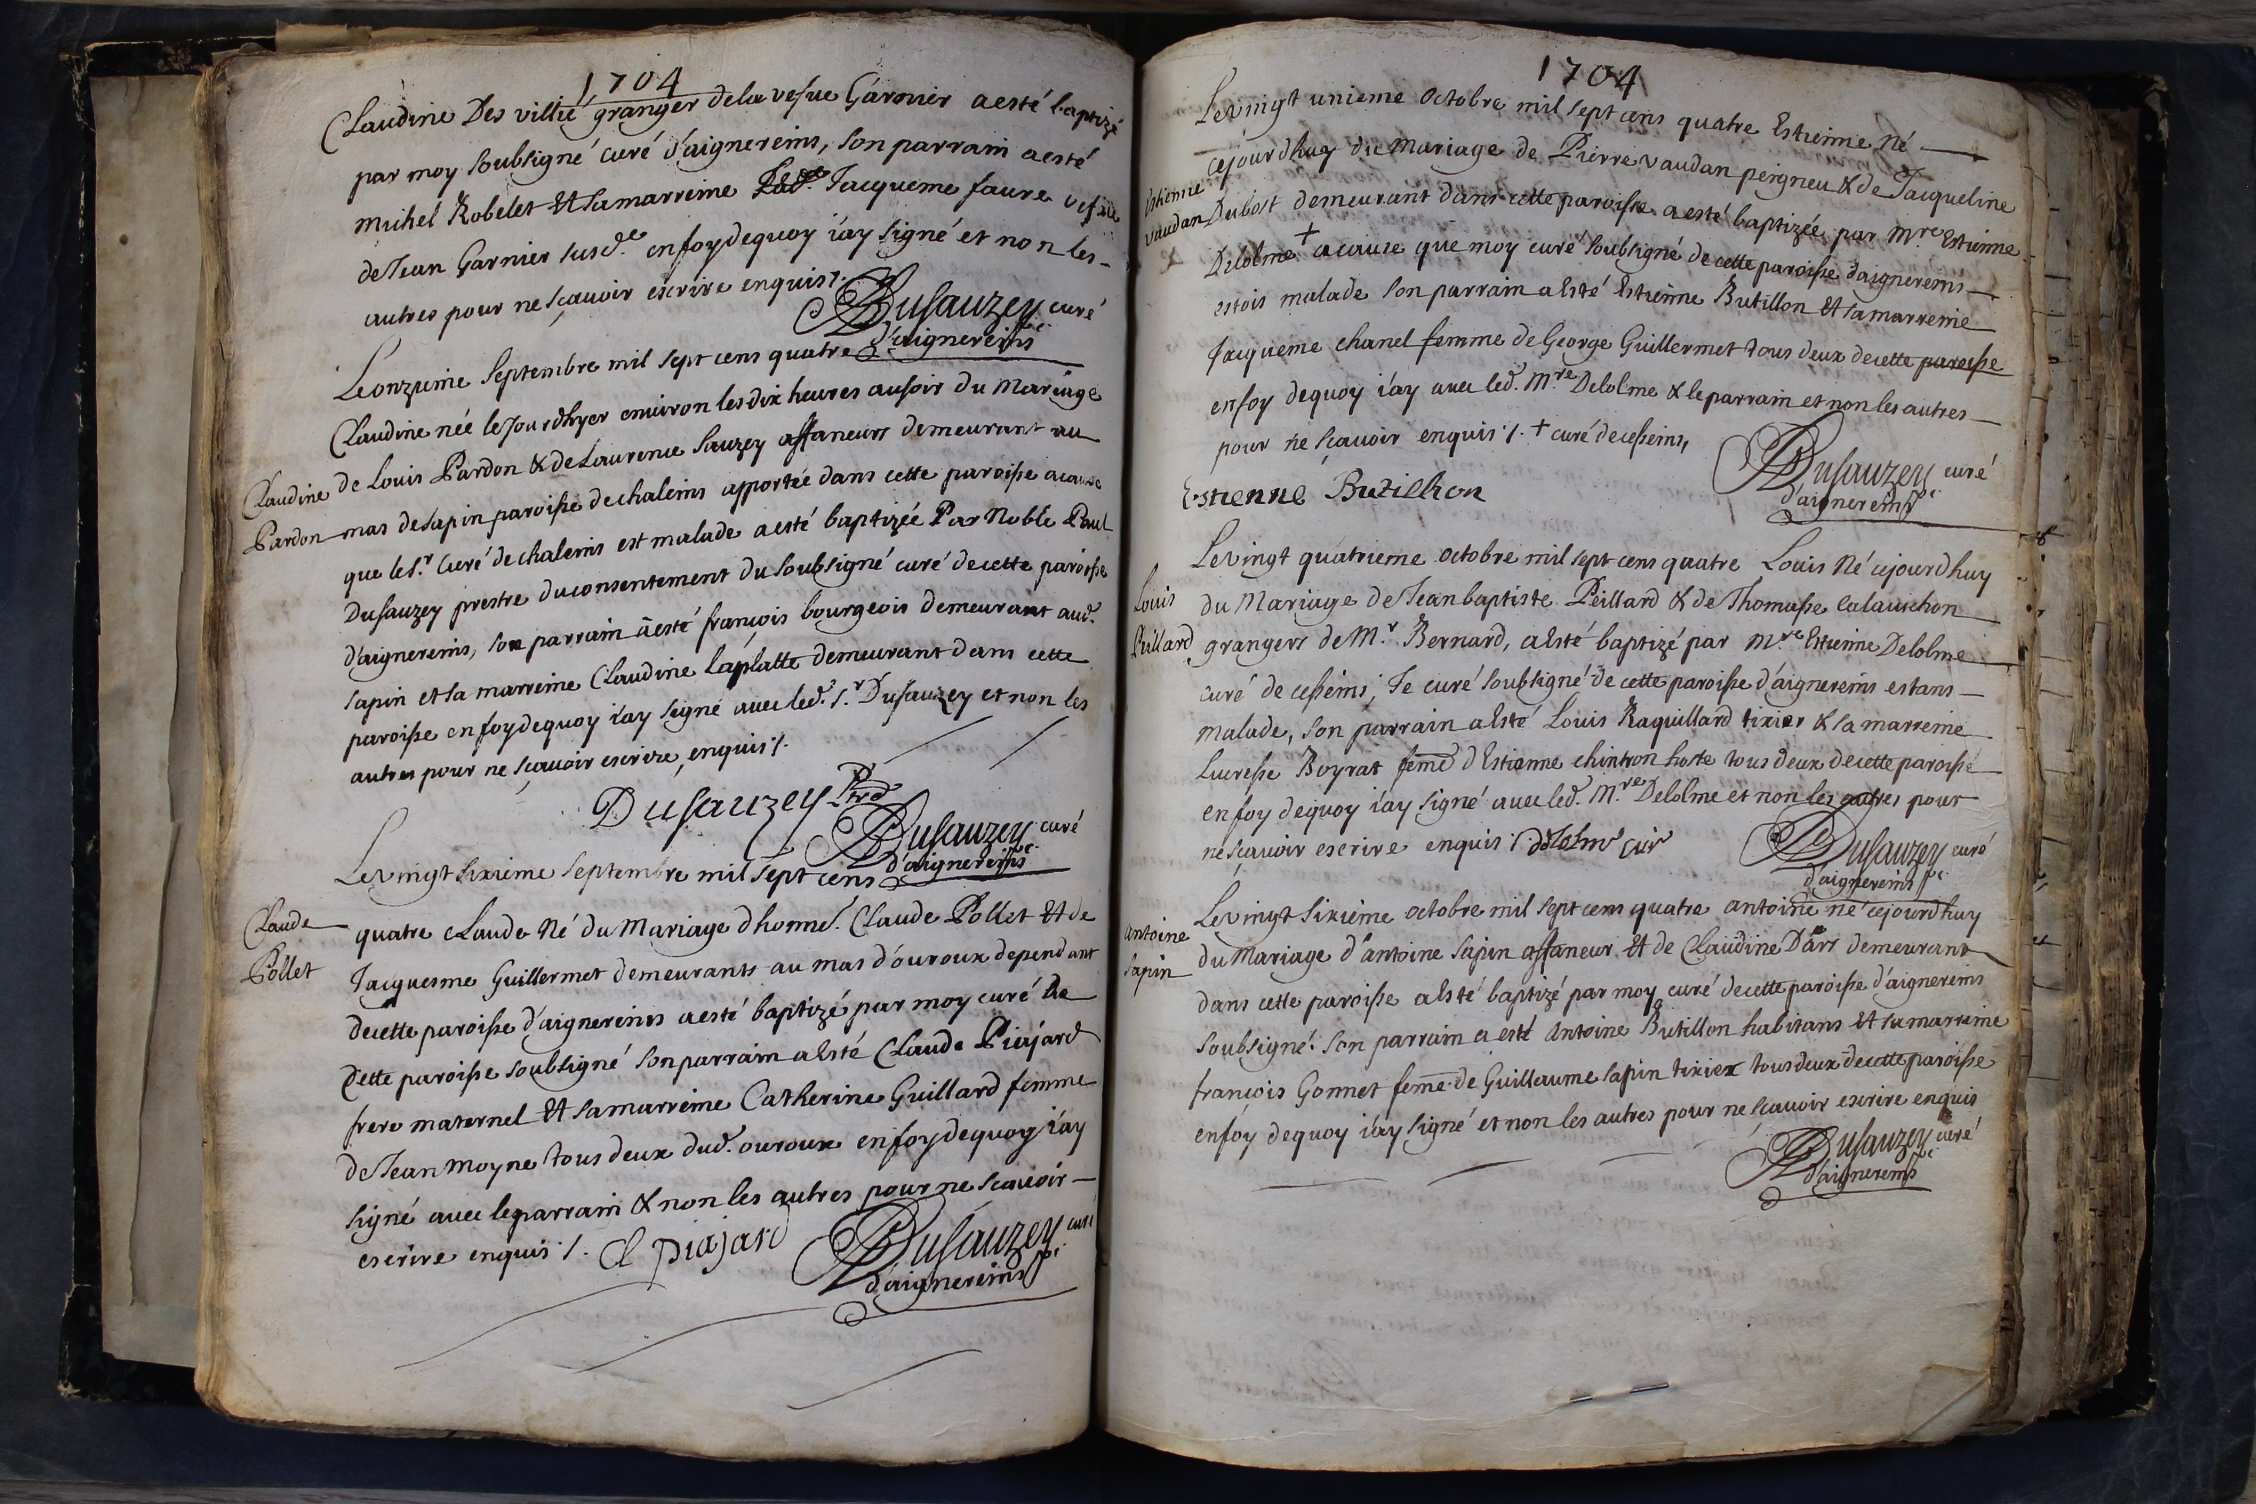 1704
Claudine Des villié granger dela vefue Garnier a esté baptizé
par moy soubsigné curé d'aignereins, son parrain a esté
michel Robelet Et sa marreine Jacqueme faure vefue
de Jean Garnier susd.e en foy dequoy i'ay signé et non les
autres pour ne sçauoir escrire enquis /.
Dusauzey curé
d'aignereins
Le onzieme Septembre mil sept cens quatre
Claudine née le Jourdhyer enuiron les dix heures au soir du Mariage
de Louis Pardon & de Laurence Sauzey affaneurs demeurant au
Claudine
Pardon
mas de sapin paroisse de chaleins apportée dans cette paroisse a cause
que le s.r Curé de chaleins est malade a esté baptizée Par Noble Paul
Dusauzey prestre du consentement du soubsigné curé de cette paroisse
d'aignereins, son parrain a esté françois bourgeois demeurant aud.
sapin et sa marreine Claudine laplatte demeurant dans cette
paroisse en foy dequoy i'ay signé auec led. s.r Dusauzey et non les
autres pour ne sçauoir escrire, enquis /.
Dusauzey Ptre
Dusauzey curé
d'aignereins
Le vingt sixieme septembre mil sept cens
Claude
Pollet
quatre Claude Né du Mariage d honne. Claude Pollet Et de
Jacquesme Guillermet demeurants au mas d'ouroux dependant
de cette paroisse d'aignereins a esté baptizé par moy curé de
Cette paroisse soubsigné son parrain a esté Claude Piajard
frere maternel Et sa marreine Catherine Guillard femme
de Jean moyne tous deux dud. ouroux en foy dequoy i'ay
signé auec le parrain & non les autres pour ne scauoir
escrire enquis /. Cl piajard
Dusauzey curé
d'aignereins
1704
Le vingt unieme octobre mil sept cens quatre Estienne Né
cejourdhuy du Mariage de Pierre vaudan peigneu & de Jacqueline
Estienne
vaudan
Dubost demeurant dans cette paroisse a esté baptizée par M.re Estienne
Delolme + a cause que moy curé soubsigné de cette paroisse daignereins
estois malade son parrain a esté Estienne Butillon Et sa marreine
Jacqueme chanel femme de George Guillermet tous deux de cette paroisse
en foy dequoy i'ay auec led. M.re Delolme & le parrain et non les autres
pour ne sçauoir enquis /. + curé de cesseins,
Estienne Butillion
Dusauzey curé
d'aignereins
Le vingt quatrieme octobre mil sept cens quatre Louis Né cejourdhuy
Louis
Peillard
du Mariage de Jean baptiste Peillard & de Thomasse Calauchon
grangers de M.r Bernard, a esté baptizé par M.re Estienne Delolme
curé de cesseins, Je curé soubsigné de cette paroisse d'aignereins estans
malade, son parrain a esté Louis Raquillard tixier & sa marreine
Lucresse Boyrat feme d'Estienne chintron hoste tous deux de cette paroisse
en foy dequoy i'ay signé auec led. M.re Delolme et non les autres pour
ne sçauoir escrire enquis /. delolme curé
Dusauzey curé
d'aignereins
Le vingt sixieme octobre mil sept cens quatre antoine né cejourdhuy
antoine
sapin
du Mariage d'antoine sapin affaneur Et de Claudine Dars demeurant
dans cette paroisse a esté baptizé par moy curé de cette paroisse d'aignereins
soubsigné. son parrain a esté Antoine Butillon habitans Et sa marreine
françois Gonnet feme de Guillaume sapin tixier tous deux de cette paroisse
en foy dequoy i'ay signé et non les autres pour ne sçauoir escrire enquis
Dusauzey curé
d'aignereins